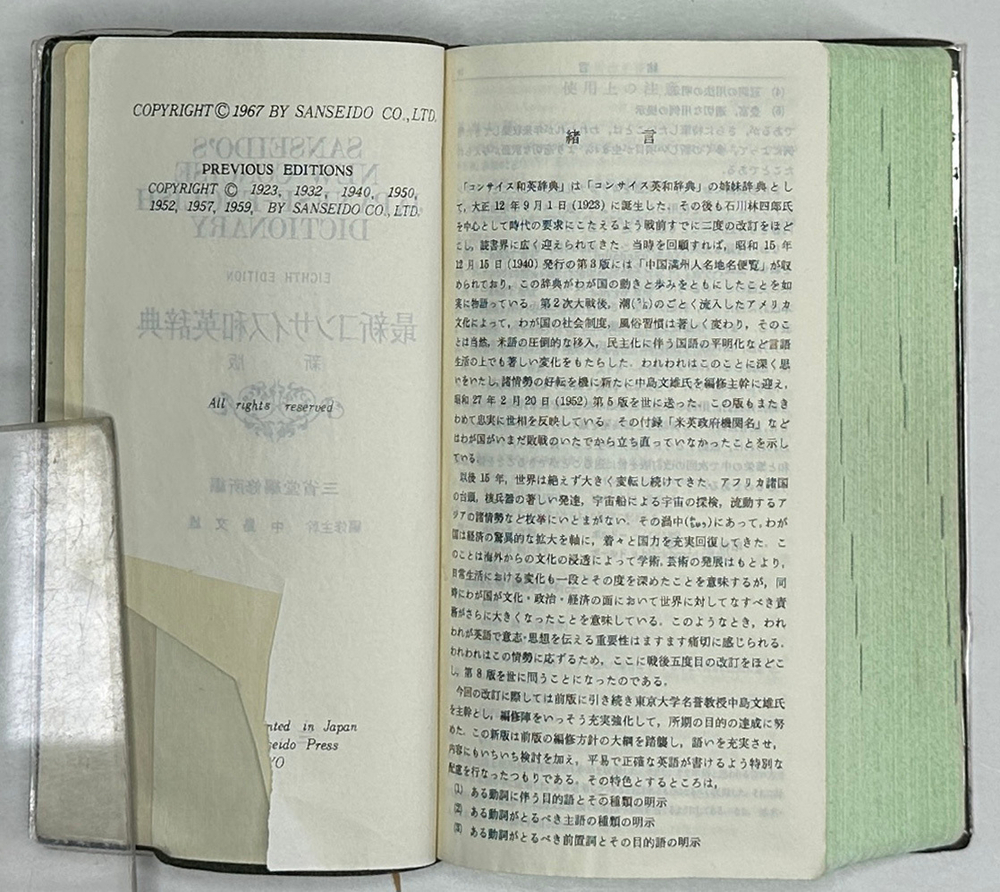 COPYRIGHT © 1967 BY SANSEIDO CO., LTD.
PREVIOUS EDITIONS
COPYRIGHT © 1923, 1932, 1940, 1950,
1952, 1957, 1959, BY SANSEIDO CO., LTD.
All rights reserved
nted in Japan
seido Press
YO
緒言
「コンサイス和英辞典」は「コンサイス英和辞典」の姉妹辞典とし
て, 大正 12 年 9 月 1 日 (1923) に誕生した. その後も石川林四郎氏
を中心として時代の要求にこたえるよう戦前すでに二度の改訂をほど
こし, 読書界に広く迎えられてきた. 当時を回顧すれば, 昭和 15 年
12 月 15 日 (1940) 発行の第 3 版には「中国満州人名地名便覧」が収
められており, この辞典がわが国の動きと歩みをともにしたことを如
実に物語っている. 第 2 次大戦後, 潮(うしお)のごとく流入したアメリカ
文化によって, わが国の社会制度, 風俗習慣は著しく変わり, そのこ
とは当然, 米語の圧倒的な移入, 民主化に伴う国語の平明化など言語
生活の上でも著しい変化をもたらした. われわれはこのことに深く思
いをいたし, 諸情勢の好転を機に新たに中島文雄氏を編修主幹に迎え,
昭和 27 年 2 月 20 日 (1952) 第 5 版を世に送った. この版もまたき
わめて忠実に世相を反映している. その付録「米英政府機関名」など
はわが国がいまだ敗戦のいたでから立ち直っていなかったことを示し
ている.
以後 15 年, 世界は絶えず大きく変転し続けてきた. アフリカ諸国
の台頭, 核兵器の著しい発達, 宇宙船による宇宙の探検, 流動するア
ジアの諸情勢など枚挙にいとまがない. その渦中(かちゅう)にあって, わが
国は経済の驚異的な拡大を軸に, 着々と国力を充実回復してきた. こ
のことは海外からの文化の浸透によって学術, 芸術の発展はもとより,
日常生活における変化も一段とその度を深めたことを意味するが, 同
時にわが国が文化・政治・経済の面において世界に対してなすべき責
務がさらに大きくなったことを意味している. このようなとき, われ
われが英語で意志・思想を伝える重要性はますます痛切に感じられる.
われわれはこの情勢に応ずるため, ここに戦後五度目の改訂をほどこ
し, 第 8 版を世に問うことになったのである.
今回の改訂に際しては前版に引き続き東京大学名誉教授中島文雄氏
を主幹とし, 編修陣をいっそう充実強化して, 所期の目的の達成に努
めた. この新版は前版の編修方針の大綱を踏襲し, 語いを充実させ,
内容にもいちいち検討を加え, 平易で正確な英語が書けるよう特別な
配慮を行なったつもりである. その特色とするところは,
(1) ある動詞に伴う目的語とその種類の明示
(2) ある動詞がとるべき主語の種類の明示
(3) ある動詞がとるべき前置詞とその目的語の明示